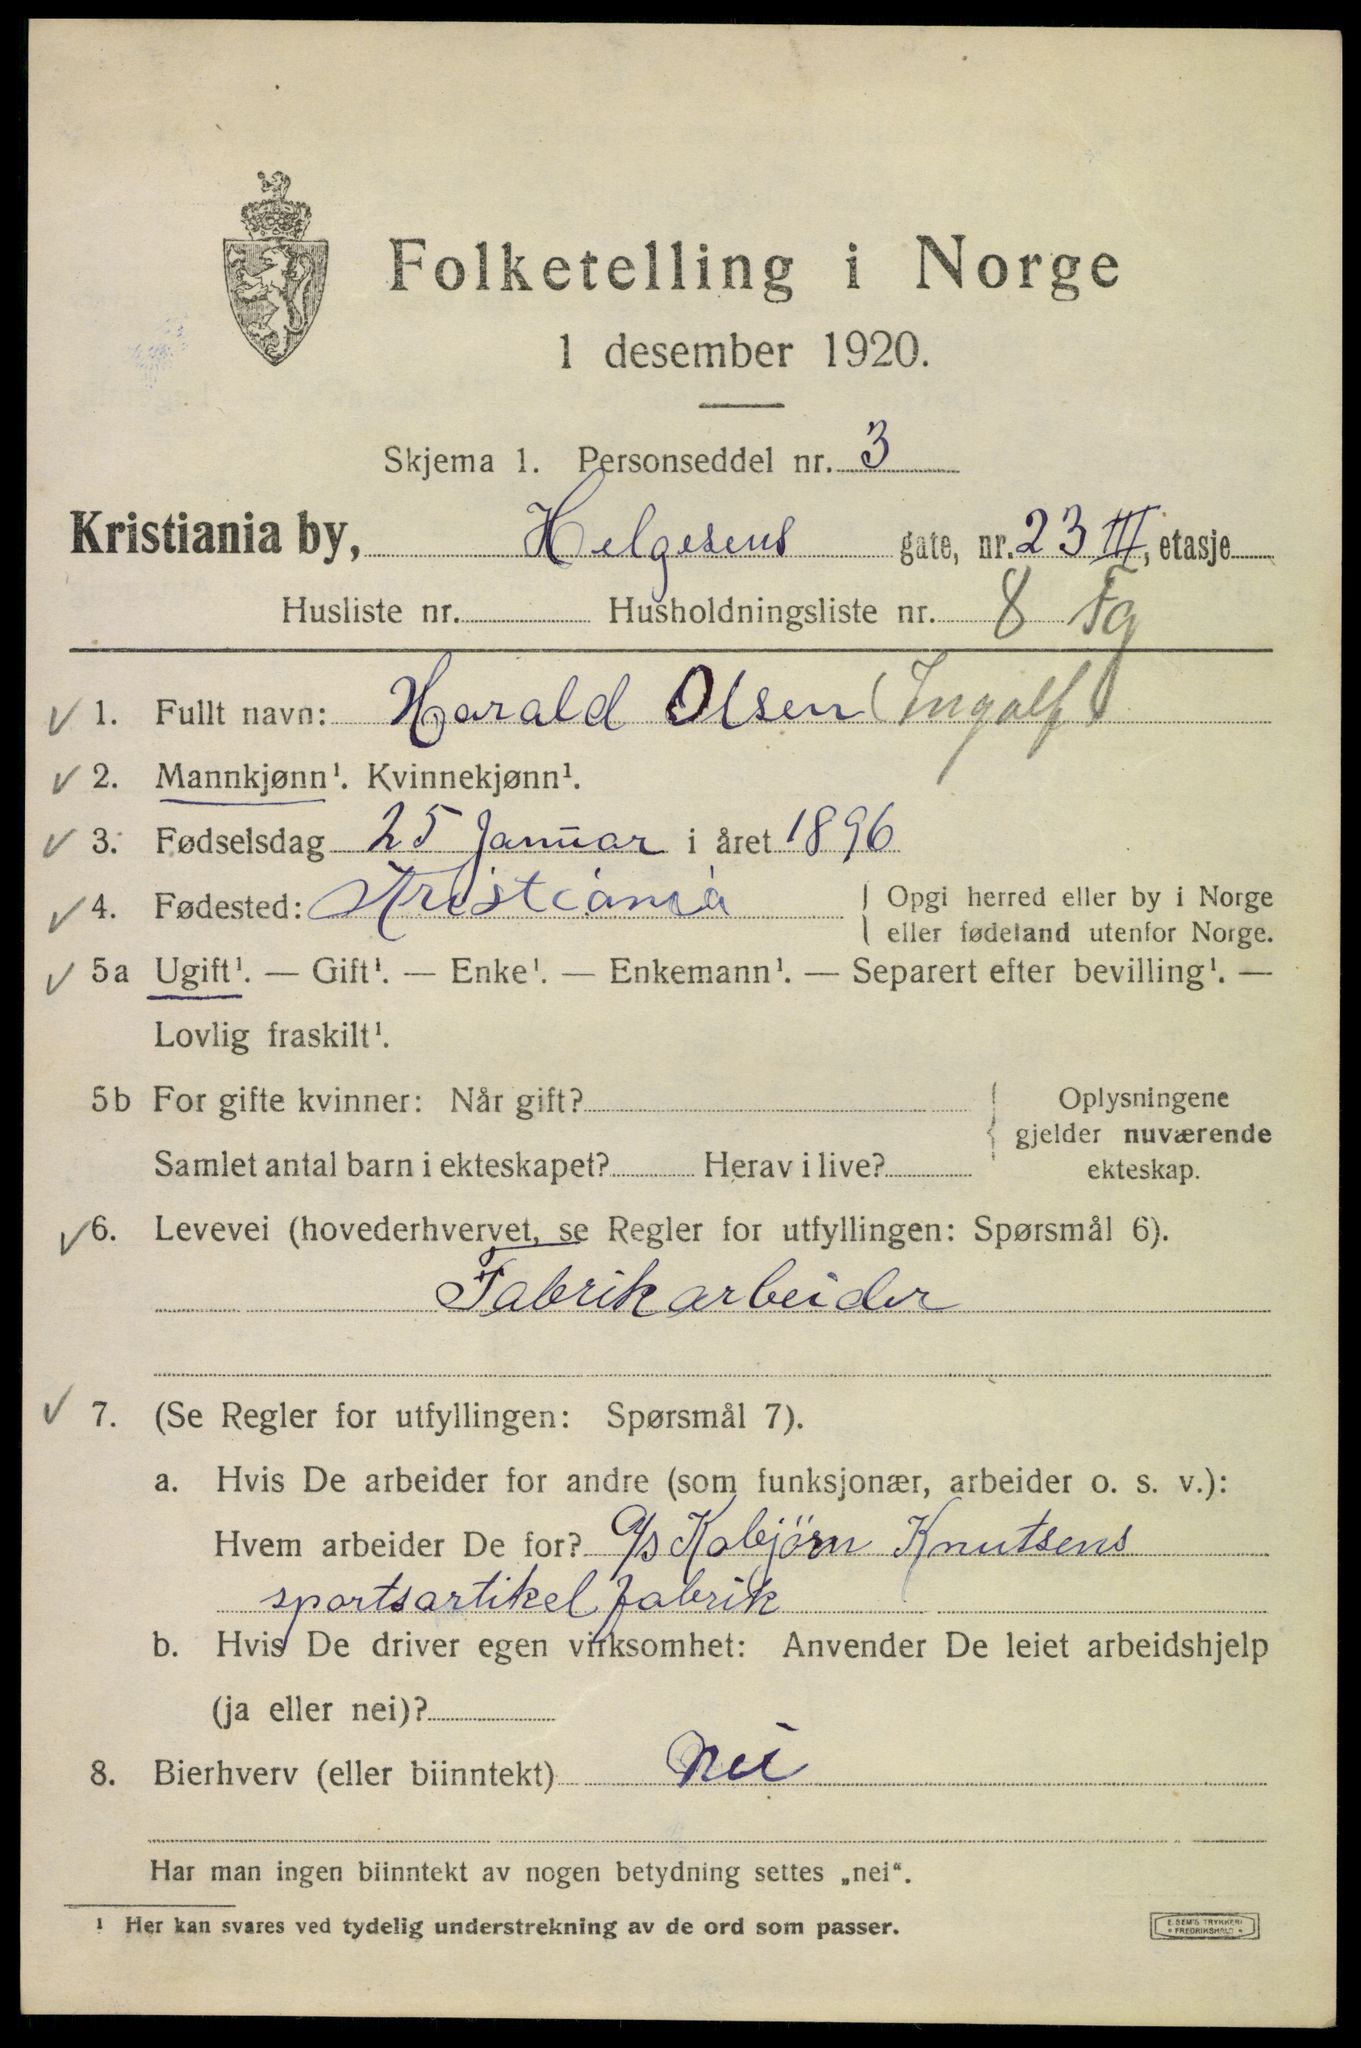 Folketelling i Norge
1 desember 1920.
Skjema 1. Personseddel nr. 3
Kristiania by, Helgesens gate, nr. 23 III, etasje
Husliste nr. Husholdningsliste nr. 8 Fg
1. Fullt navn: Harald Olsen (Ingolf)
2. Mannkjønn¹. Kvinnekjønn¹.
3. Fødselsdag 25 Januar i året 1896
4. Fødested: Kristiania
Opgi herred eller by i Norge
eller fødeland utenfor Norge.
5a Ugift¹. — Gift¹. — Enke¹. — Enkemann¹. — Separert efter bevilling¹. —
Lovlig fraskilt¹.
5b For gifte kvinner: Når gift?
Samlet antal barn i ekteskapet? Herav i live?
Oplysningene
gjelder nuværende
ekteskap.
6. Levevei (hovederhvervet, se Regler for utfyllingen: Spørsmål 6).
Fabrikarbeider
7. (Se Regler for utfyllingen: Spørsmål 7).
a. Hvis De arbeider for andre (som funksjonær, arbeider o. s. v.):
Hvem arbeider De for? Knutsens
sportsartikel fabrik
b. Hvis De driver egen virksomhet: Anvender De leiet arbeidshjelp
(ja eller nei)?
8. Bierhverv (eller biinntekt) Nei
Har man ingen biinntekt av nogen betydning settes „nei“.
¹ Her kan svares ved tydelig understrekning av de ord som passer.
E. SEM'S TRYKKERI
* FREDRIKSHALD *